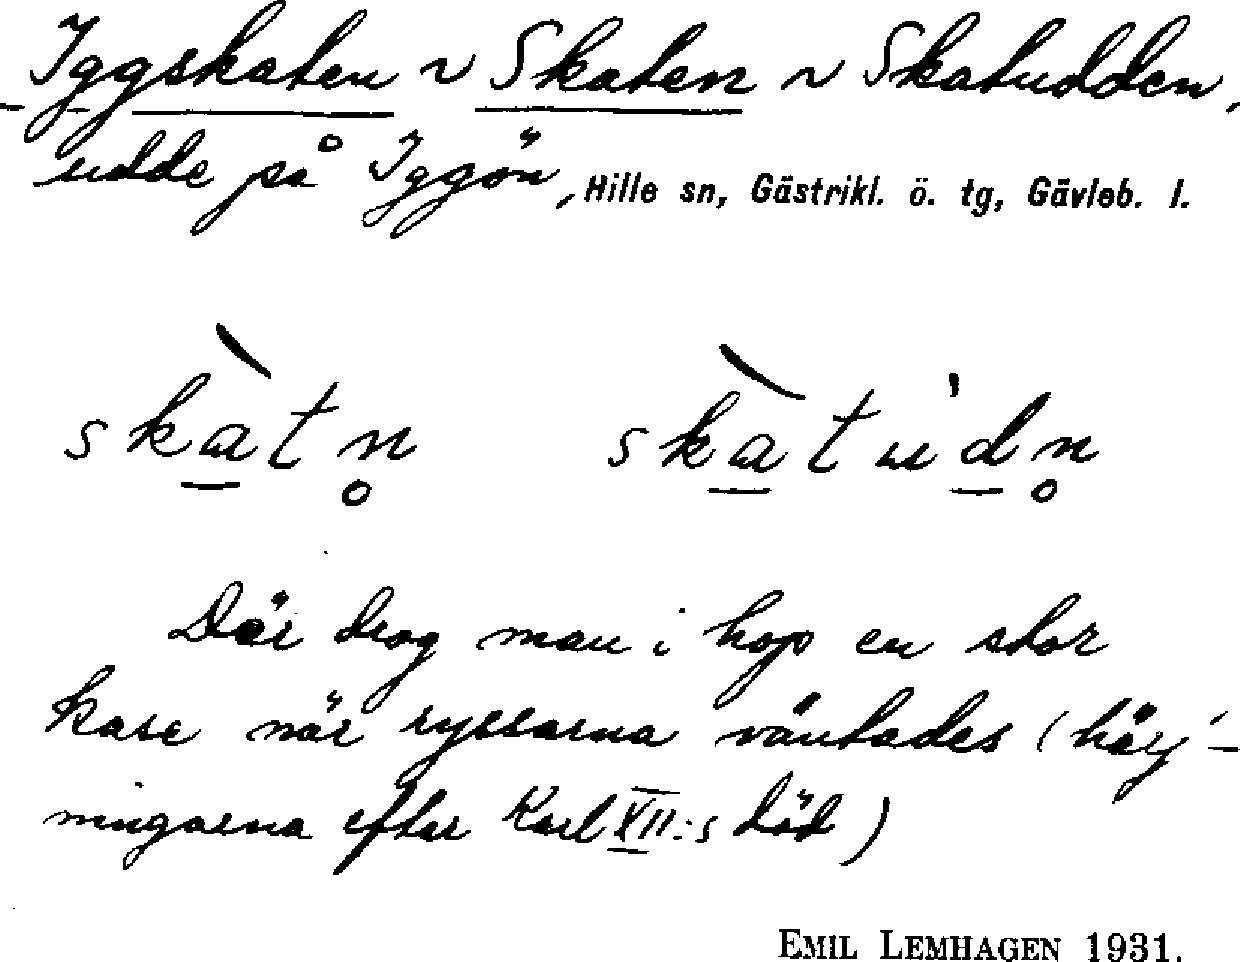 Iggskaten ~ Skaten ~ Skatudden,
udde på Iggön, Hille sn, Gästrikl. ö. tg, Gävleb. l.
skàtn̥ skàtu'dn̥
Där drog man i hop en stor
kase när ryssarna väntades (härj-
ningarna efter Karl XII:s död)
EMIL LEMHAGEN 1931.